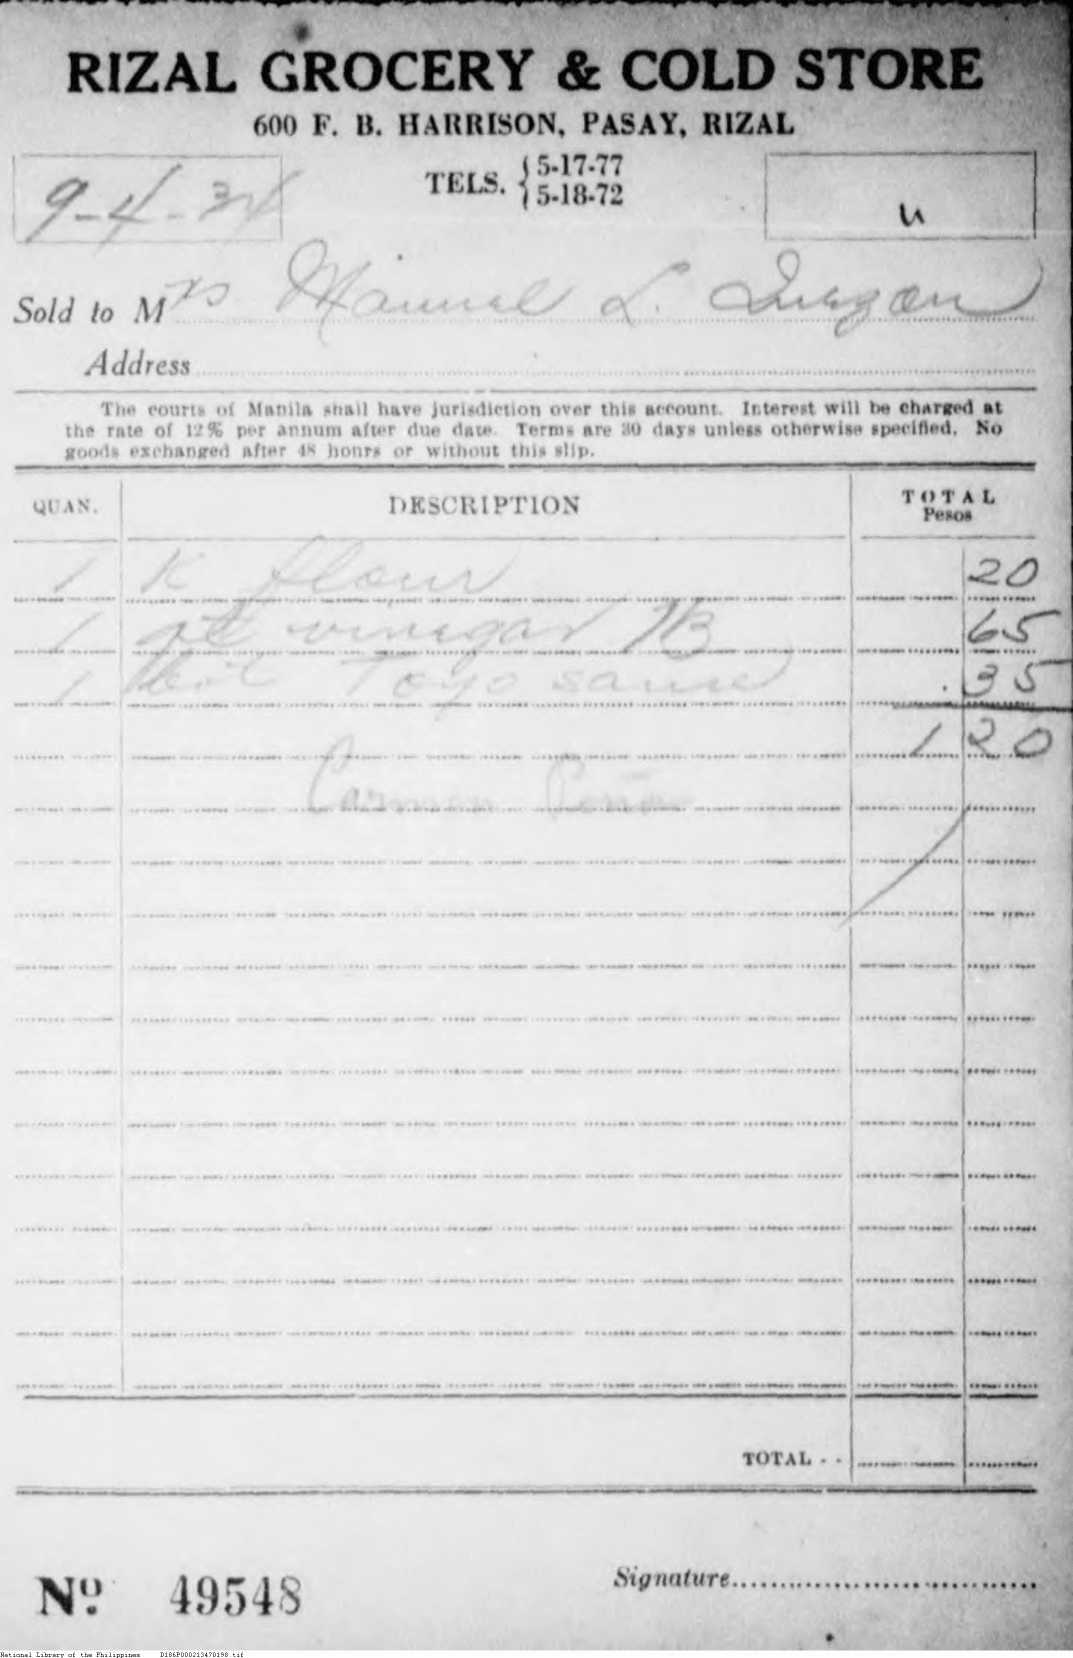 RIZAL GROCERY & COLD STORE
600 F. B. HARRISON, PASAY, RIZAL
9-4-34
TELS. { 5-17-77
5-18-72
u
Sold to Mrs Manuel L. Quezon
Address
The courts of Manila shall have jurisdiction over this account. Interest will be charged at
the rate of 12% per annum after due date. Terms are 30 days unless otherwise specified. No
goods exchanged after 48 hours or without this slip.
QUAN. DESCRIPTION TOTAL
Pesos
1 K flour 20
1 vinegar 65
1 Toyo sauce .35
1 20
Carmen
TOTAL - -
Signature
No. 49548
National Library of the Philippines D186P000213470190.tif